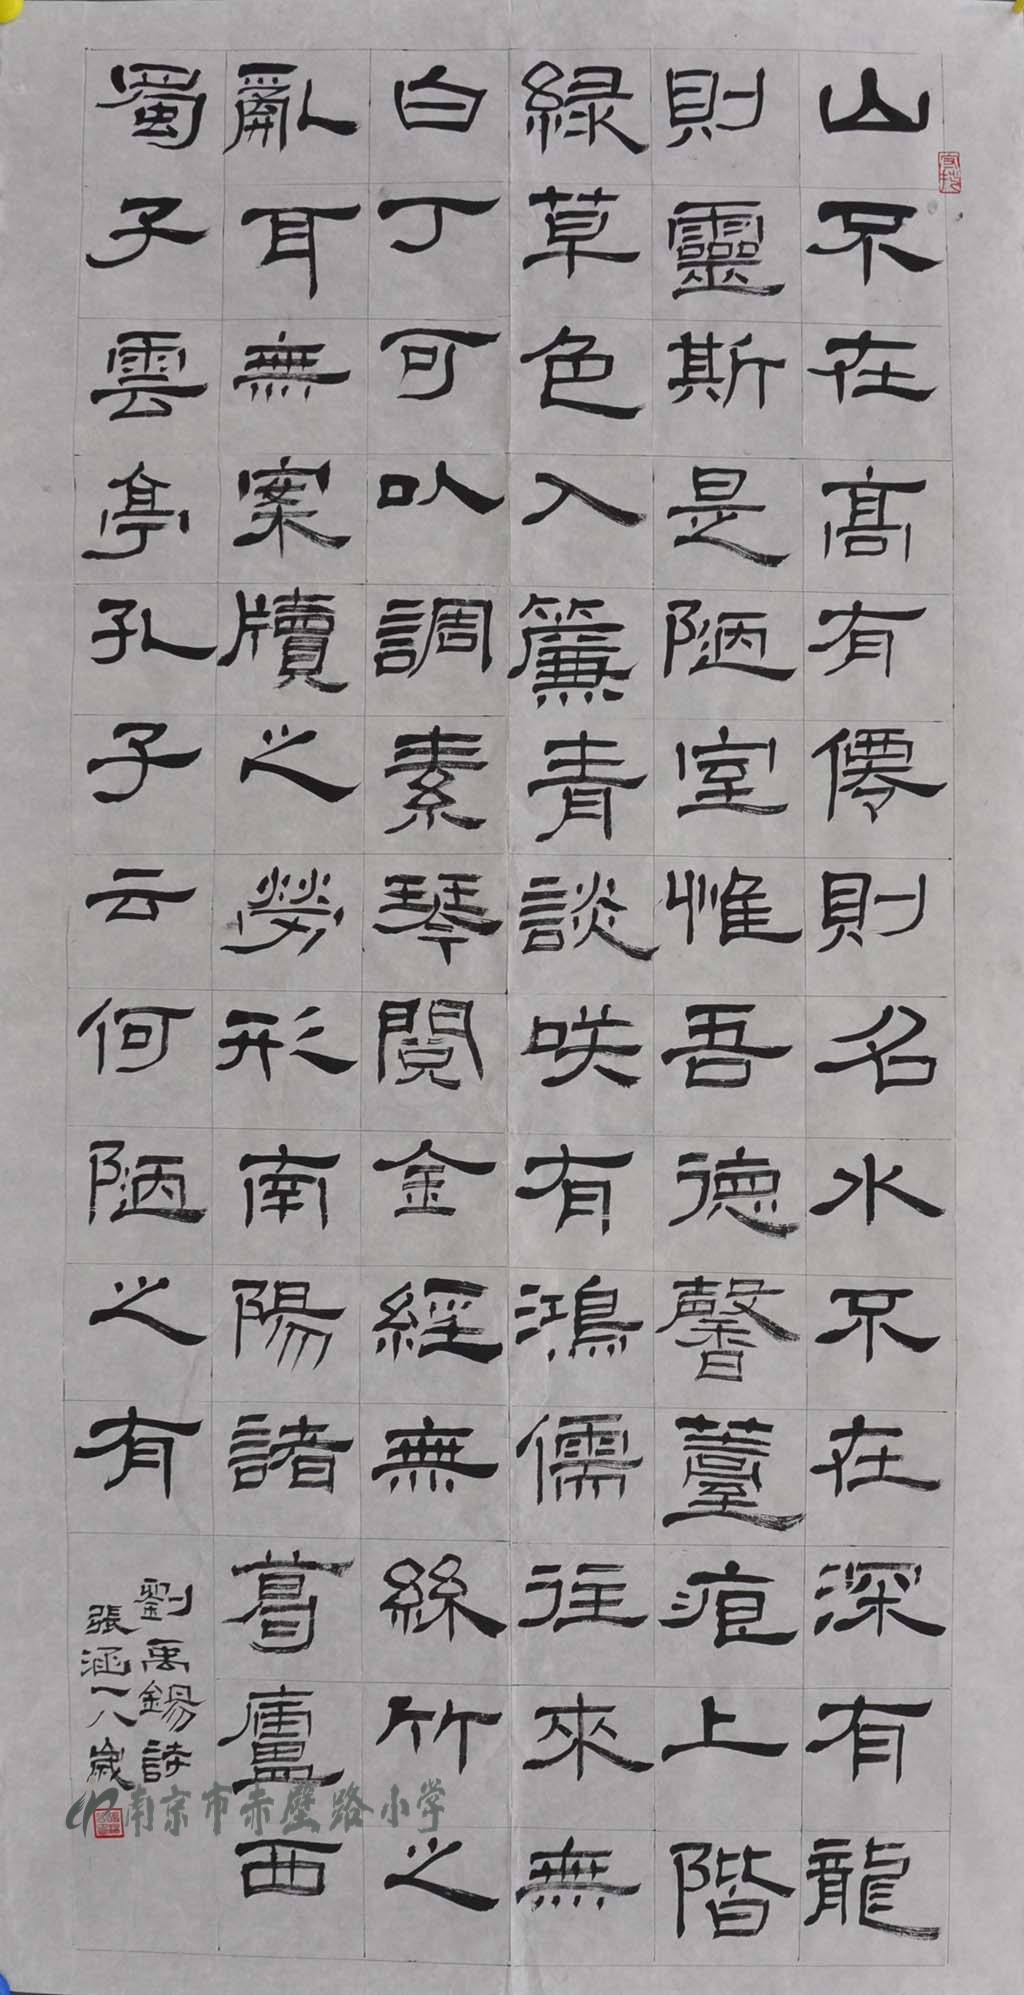 山不在高有僊則名水不在深有龍
則靈斯是陋室惟吾德馨薹痕上階
緑草色入簾青談咲有鴻儒往來無
白丁可以調素琴閱金經無絲竹之
亂耳無案牘之勞形南陽諸葛廬西
蜀子雲亭孔子云何陋之有
劉禹錫詩
張涵一八歲
南京市赤壁路小学